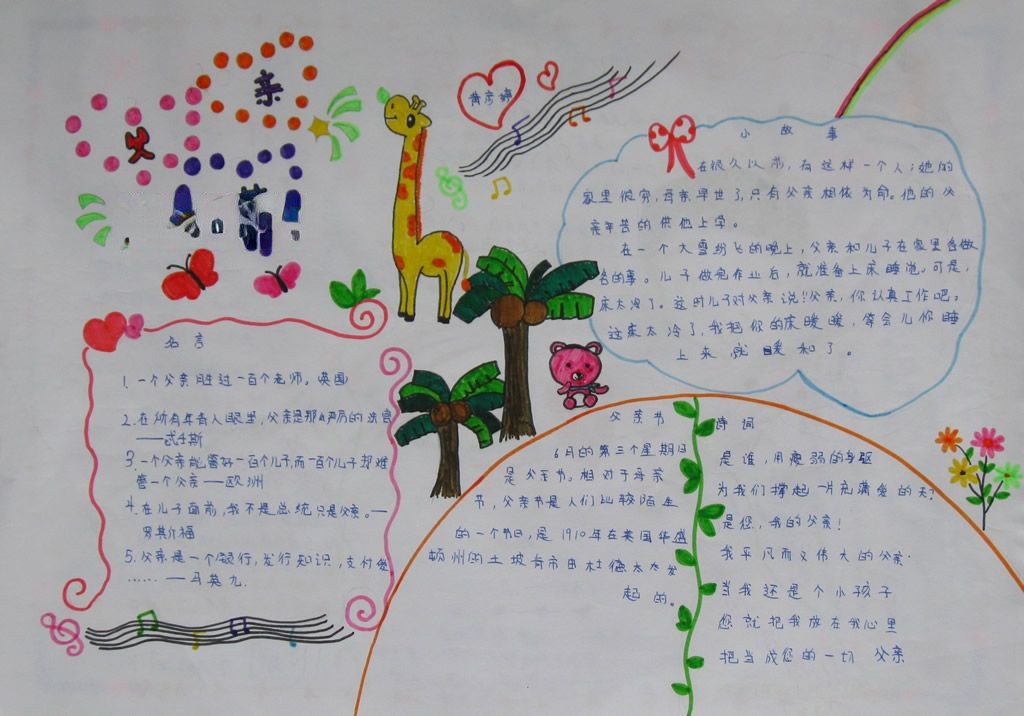 父
亲
黄彦婷
小故事
在很久以前,有这样一个人;她的
家里很穷,母亲早世了,只有父亲相依为命。他的父
亲辛苦的供他上学。
在一个大雪纷飞的晚上,父亲和儿子在家里各做
各的事。儿子做完作业后,就准备上床睡觉。可是,
床太冷了。这时儿子对父亲说:父亲,你认真工作吧。
这床太冷了,我把你的床暖暖,等会儿你睡
上来就暖和了。
名言
1. 一个父亲胜过一百个老师。英国
2. 在所有年青人眼里,父亲是那么严厉的法官
——忒4斯
3. 一个父亲能管好一百个儿子,而一百个儿子却难
管一个父亲——欧洲
4. 在儿子面前,我不是总统只是父亲。—
罗斯福
5. 父亲是一个银行,发行知识,支付爱
……——马英九.
父亲节
6月的第三个星期日
是父亲节。相对于母亲
节,父亲节是人们比较陌生
的一个节日,是1910年在美国华盛
顿州的士坡肯市由杜德太太发
起的。
诗词
是谁,用瘦弱的身躯
为我们撑起一片充满爱的天?
是您,我的父亲!
我平凡而又伟大的父亲.
当我还是个小孩子
您就把我放在我心里
把当成您的一切 父亲